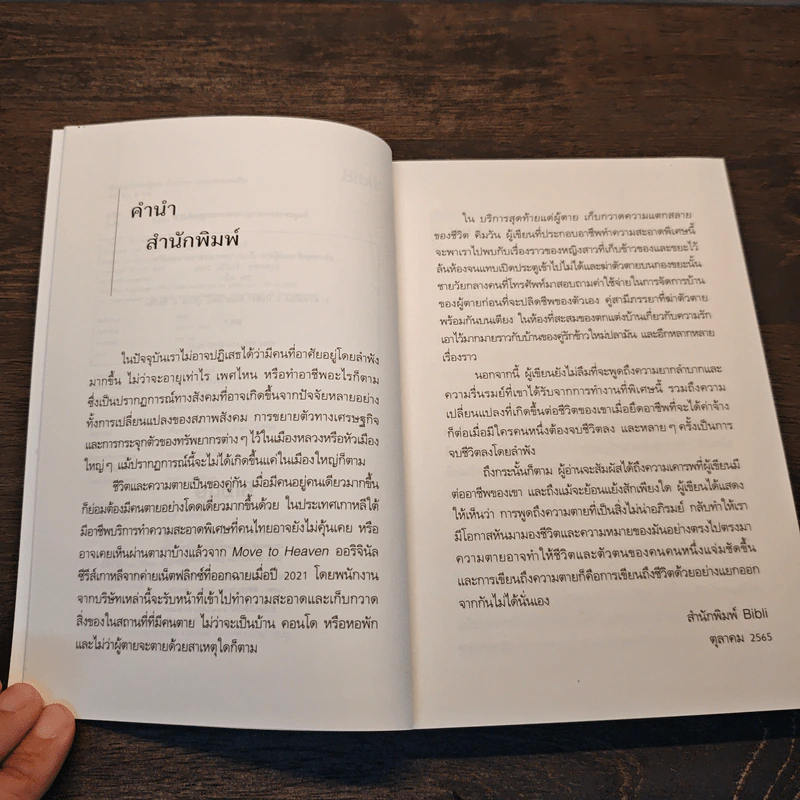 คำนำ
สำนักพิมพ์
ในปัจจุบันเราไม่อาจปฏิเสธได้ว่ามีคนที่อาศัยอยู่โดยลำพัง
มากขึ้น ไม่ว่าจะอายุเท่าไร เพศไหน หรือทำอาชีพอะไรก็ตาม
ซึ่งเป็นปรากฏการณ์ทางสังคมที่อาจเกิดขึ้นจากปัจจัยหลายอย่าง
ทั้งการเปลี่ยนแปลงของสภาพสังคม การขยายตัวทางเศรษฐกิจ
และการกระจุกตัวของทรัพยากรต่างๆ ไว้ในเมืองหลวงหรือหัวเมือง
ใหญ่ๆ แม้ปรากฏการณ์นี้จะไม่ได้เกิดขึ้นแค่ในเมืองใหญ่ก็ตาม
ชีวิตและความตายเป็นของคู่กัน เมื่อมีคนอยู่คนเดียวมากขึ้น
ก็ย่อมต้องมีคนตายอย่างโดดเดี่ยวมากขึ้นด้วย ในประเทศเกาหลีใต้
มีอาชีพบริการทำความสะอาดพิเศษที่คนไทยอาจยังไม่คุ้นเคย หรือ
อาจเคยเห็นผ่านตามาบ้างแล้วจาก Move to Heaven ออริจินัล
ซีรีส์เกาหลีจากค่ายเน็ตฟลิกซ์ที่ออกฉายเมื่อปี 2021 โดยพนักงาน
จากบริษัทเหล่านี้จะรับหน้าที่เข้าไปทำความสะอาดและเก็บกวาด
สิ่งของในสถานที่ที่มีคนตาย ไม่ว่าจะเป็นบ้าน คอนโด หรือหอพัก
และไม่ว่าผู้ตายจะตายด้วยสาเหตุใดก็ตาม
ใน บริการสุดท้ายแด่ผู้ตาย เก็บกวาดความแตกสลาย
ของชีวิต คิมวัน ผู้เขียนที่ประกอบอาชีพทำความสะอาดพิเศษนี้
จะพาเราไปพบกับเรื่องราวของหญิงสาวที่เก็บข้าวของและขยะไว้
ล้นห้องจนแทบเปิดประตูเข้าไปไม่ได้และฆ่าตัวตายบนกองขยะนั้น
ชายวัยกลางคนที่โทรศัพท์มาสอบถามค่าใช้จ่ายในการจัดการบ้าน
ของผู้ตายก่อนที่จะปลิดชีพของตัวเอง คู่สามีภรรยาที่ฆ่าตัวตาย
พร้อมกันบนเตียง ในห้องที่สะสมของตกแต่งบ้านเกี่ยวกับความรัก
เอาไว้มากมายราวกับบ้านของคู่รักข้าวใหม่ปลามัน และอีกหลากหลาย
เรื่องราว
นอกจากนี้ ผู้เขียนยังไม่ลืมที่จะพูดถึงความยากลำบากและ
ความรื่นรมย์ที่เขาได้รับจากการทำงานที่พิเศษนี้ รวมถึงความ
เปลี่ยนแปลงที่เกิดขึ้นต่อชีวิตของเขาเมื่อยึดอาชีพที่จะได้ค่าจ้าง
ก็ต่อเมื่อมีใครคนหนึ่งต้องจบชีวิตลง และหลายๆ ครั้งเป็นการ
จบชีวิตลงโดยลำพัง
ถึงกระนั้นก็ตาม ผู้อ่านจะสัมผัสได้ถึงความเคารพที่ผู้เขียนมี
ต่ออาชีพของเขา และถึงแม้จะย้อนแย้งสักเพียงใด ผู้เขียนได้แสดง
ให้เห็นว่า การพูดถึงความตายที่เป็นสิ่งไม่น่าอภิรมย์ กลับทำให้เรา
มีโอกาสหันมามองชีวิตและความหมายของมันอย่างตรงไปตรงมา
ความตายอาจทำให้ชีวิตและตัวตนของคนคนหนึ่งแจ่มชัดขึ้น
และการเขียนถึงความตายก็คือการเขียนถึงชีวิตด้วยอย่างแยกออก
จากกันไม่ได้นั่นเอง
สำนักพิมพ์ Bibli
ตุลาคม 2565